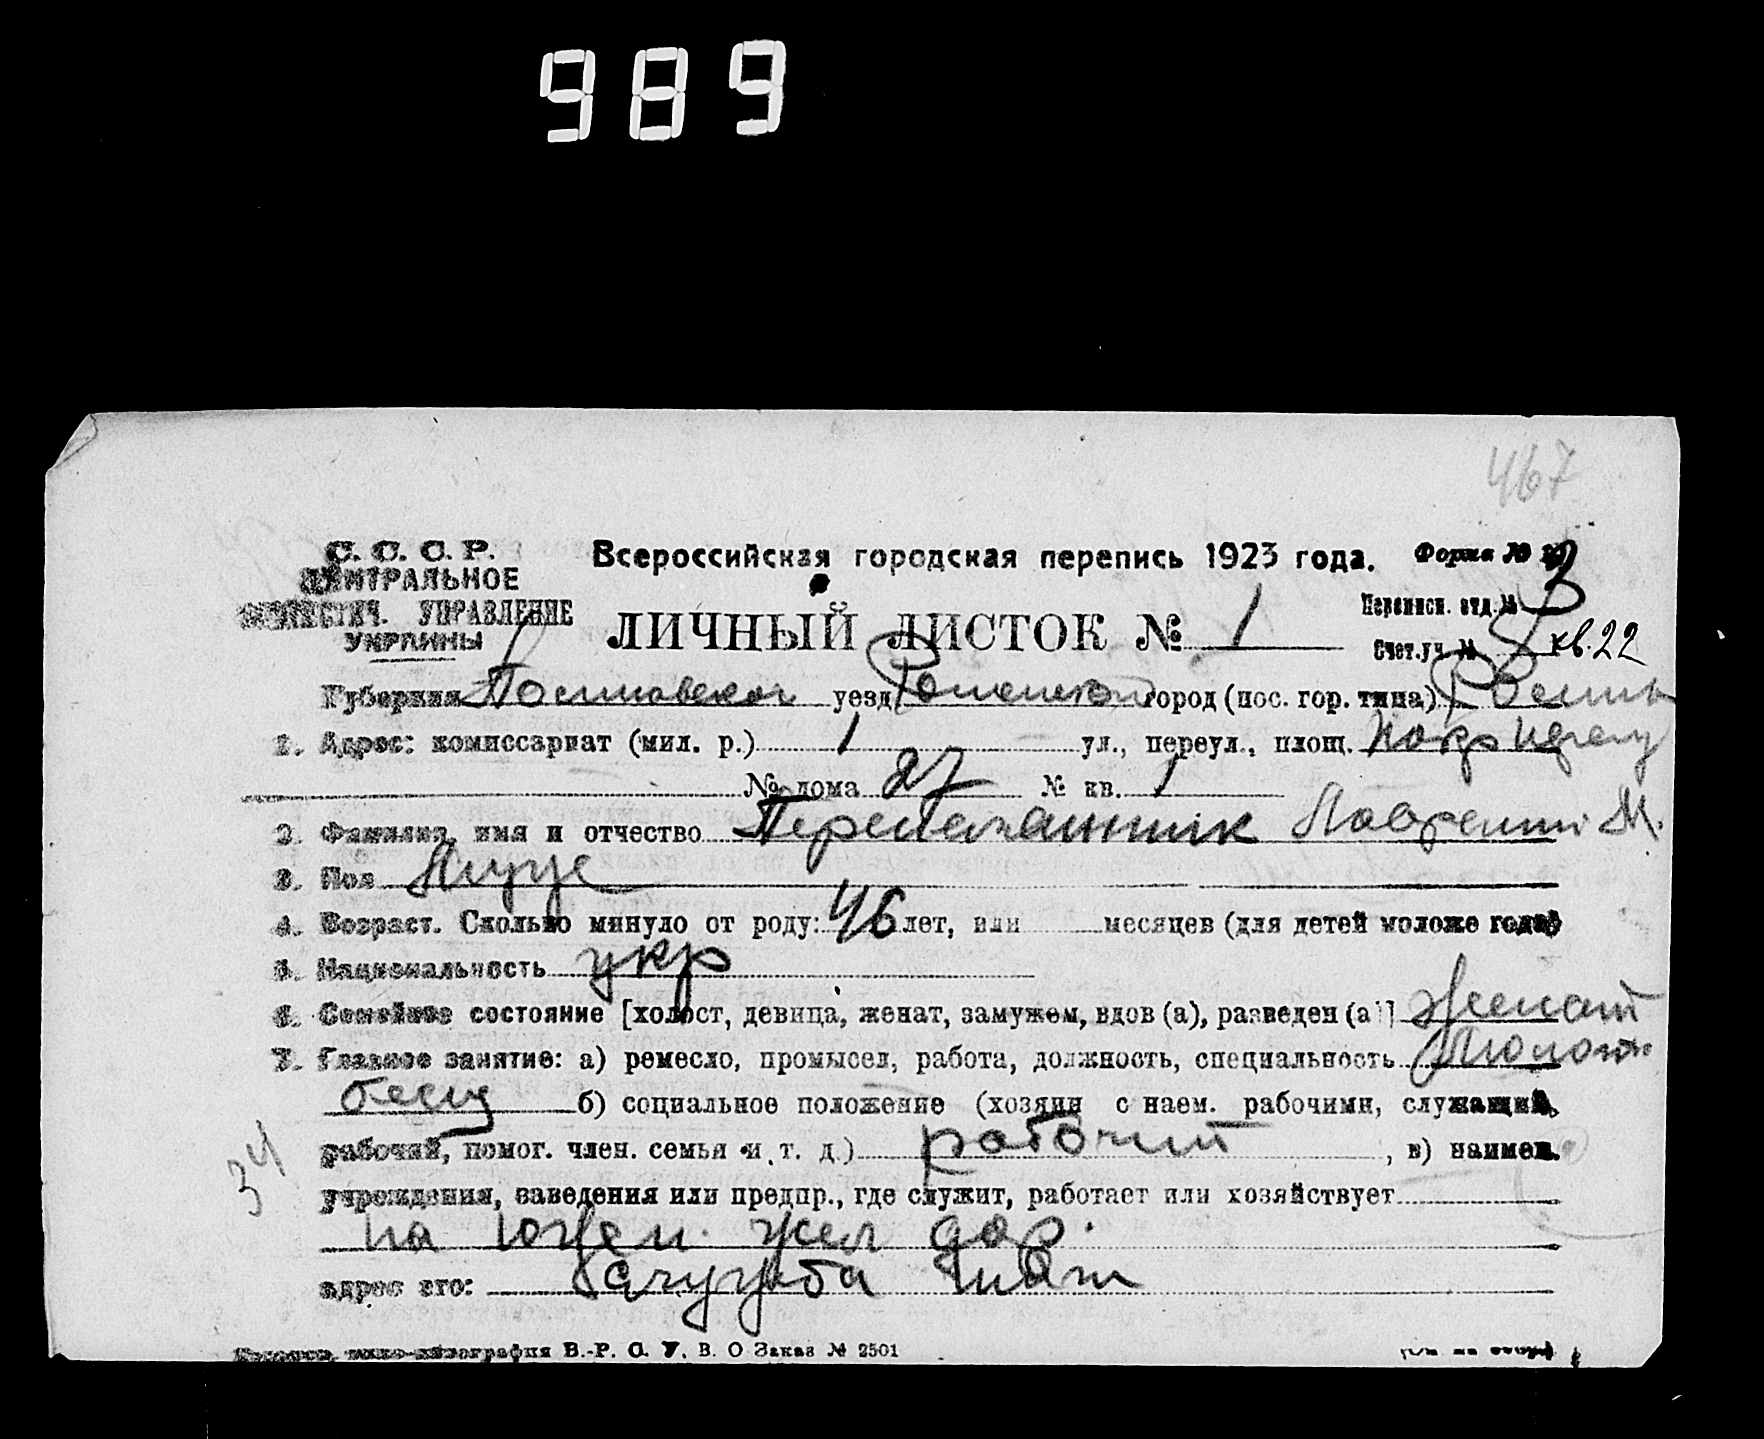 989
467
С. С. С. Р.
ЦЕНТРАЛЬНОЕ
СТАТИСТИЧ. УПРАВЛЕНИЕ
УКРАИНЫ
Всероссийская городская перепись 1923 года.
Форма №
ЛИЧНЫЙ ЛИСТОК № 1
Переписн. отд. № 3
Счет. уч. № кв. 22
Губерния Полтавской уезд Роменской город (пос. гор. типа) Ромны
1. Адрес: комиссариат (мил. р.) 1 ул., переул., площ.
№ дома 27 № кв. 1
2. Фамилия, имя и отчество Перепечанник Лаврентий М.
3. Пол Мужс
4. Возраст. Сколько минуло от роду: 46 лет, или месяцев (для детей моложе года)
5. Национальность укр
6. Семейное состояние [холост, девица, женат, замужем, вдов (а), разведен (а)] Женат
7. Главное занятие: а) ремесло, промысел, работа, должность, специальность Молото
боец б) социальное положение (хозяин с наем. рабочими, служащий,
рабочий, помог. член. семьи и т. д.) рабочий, в) наимен.
34
учреждения, заведения или предпр., где служит, работает или хозяйствует
на Южн. жел дор.
адрес его: Служба тяги
В.-Р. С. У. В. О Заказ № 2501